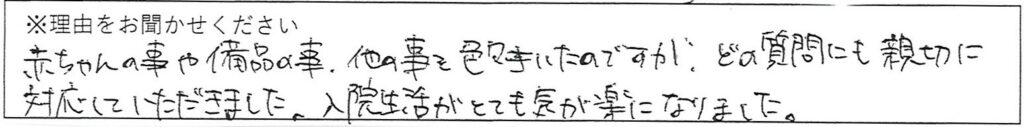 ※理由をお聞かせください
赤ちゃんの事や備品の事、他の事を色々きいたのですが、どの質問にも親切に
対応していただきました。入院生活がとても気が楽になりました。